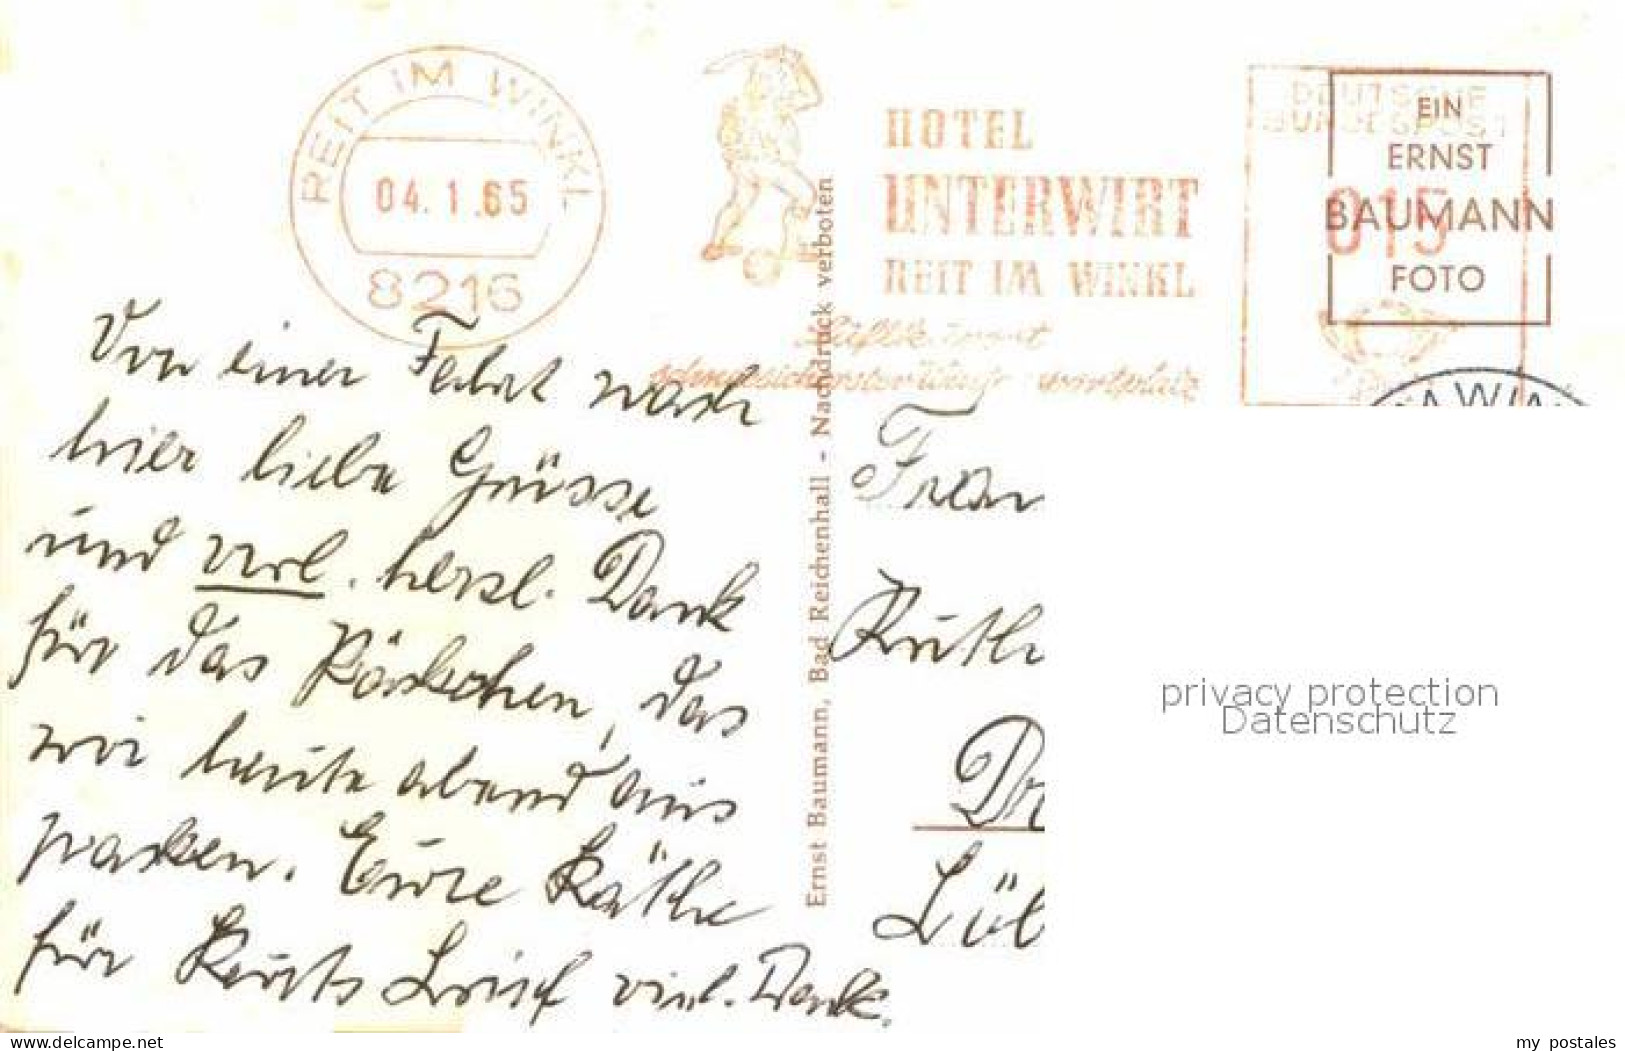 REIT IM WINKL
04.1.65
8216
HOTEL
UNTERWIRT
REIT IM WINKL
DEUTSCHE
BUNDESPOST
015
EIN
ERNST
BAUMANN
FOTO
Von einer Fahrt nach
hier liebe Grüsse
und verl. herzl. Dank
für das Päckchen, das
wir heute abend aus
packen. Eure Käthe
für Kurts Brief viel. Dank.
Ernst Baumann, Bad Reichenhall - Nachdruck verboten
Frau
Ruth
Dr
Lüb
privacy protection
Datenschutz
www.ansichtskartenversand.com
my_postales